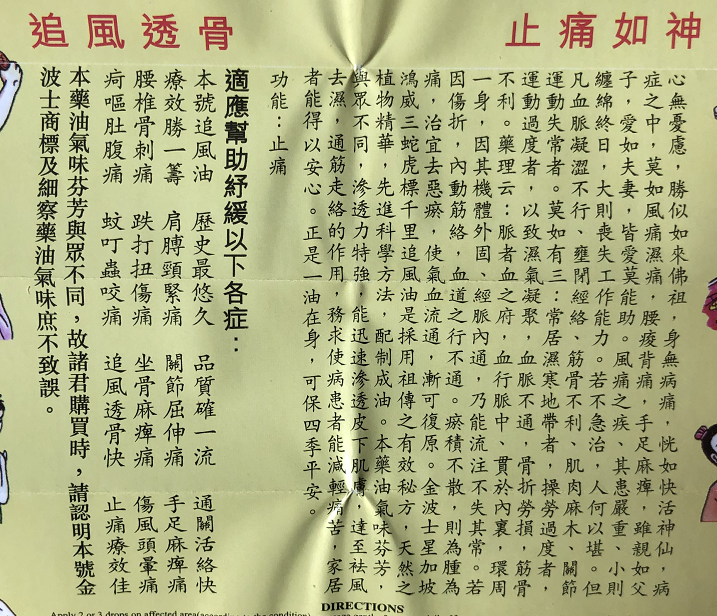 止痛如神
追風透骨
心無憂慮，勝似如來佛祖，身無病痛，恍如快活神仙，病
症之中，莫如風痛濕痛，腰痠背痛，手足麻痺，雖親如父
子，愛如夫妻，皆愛莫能助。風痛之疾、其患嚴重、小如
纏綿終日，大則喪失工作能力。若不急治，人何以堪。但
凡血脈凝澀不行、壅閉經絡、筋骨不利、肌肉麻木、關節
運動失常者。莫如有三：常居濕寒地帶者，操勞過度者，
運動過度者，以致濕氣凝聚，血脈不通，骨折勞損，筋骨
不利。藥理云：脈者血之府，血行脈中、貫於內裏，環周
一身，因其機體外固、經脈內通，乃能流注不失其常。若
因傷折，內動筋絡，血道之行不通。瘀積不散，則為腫為
痛，治宜去惡瘀，使氣血流通，漸可復原。金波士星加坡
鴻威三蛇虎標千里追風油是採用祖傳之有效秘方，天然之
植物精華，先進科學方法，配制成油。本藥油氣味芬芳，
與眾不同，滲透力特強，能迅速滲透皮下肌膚，達至袪風
去濕，通筋走絡的作用，務求使病患者能減輕痛苦，家居
者能得以安心。正是一油在身，可保四季平安。
功能：止痛
適應幫助紓緩以下各症：
本號追風油 歷史最悠久 品質確一流 通關活絡快
療效勝一籌 肩膊頸緊痛 關節屈伸痛 手足麻痺痛
腰椎骨刺痛 跌打扭傷痛 坐骨麻痺痛 傷風頭暈痛
疴嘔肚腹痛 蚊叮蟲咬痛 追風透骨快 止痛療效佳
本藥油氣味芬芳與眾不同，故諸君購買時，請認明本號金
波士商標及細察藥油氣味庶不致誤。
DIRECTIONS
Apply 2 or 3 drops on affected area